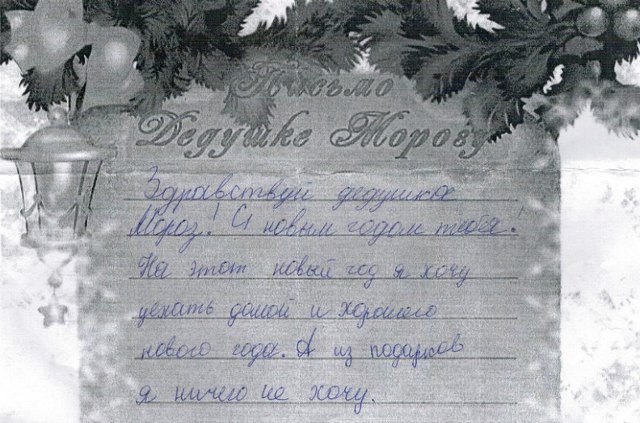 Письмо
Дедушке Морозу
Здравствуй дедушка
Мороз! С новым годом тебя!
На этот новый год я хочу
уехать домой и хорошего
нового года. А из подарков
я ничего не хочу.